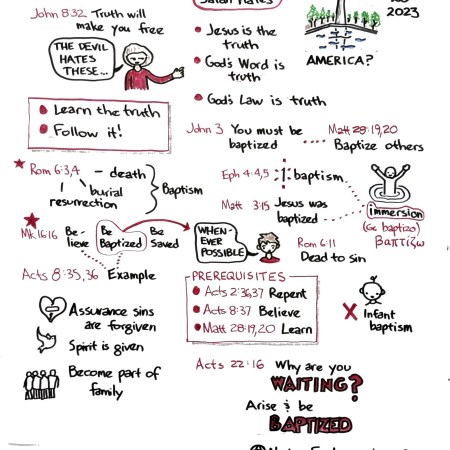 John 8:32 Truth will
make you free
THE DEVIL
HATES
THESE...
Learn the truth
Follow it!
Satan Hates
Jesus is the
truth
God's Word is
truth
God's Law is truth
2023
AMERICA?
John 3 You must be
baptized
Matt 28:19,20
Baptize others
Rom 6:3,4 - death
burial
resurrection
Baptism
Eph 4:4,5 1 baptism
Matt 3:15 Jesus was
baptized
immersion
(Gk baptizo)
βαπτίζω
Mk 16:16 Be-
lieve
Be
Baptized
Be
Saved
WHEN-
EVER
POSSIBLE
Rom 6:11
Dead to sin
Acts 8:35,36 Example
PREREQUISITES
Acts 2:36,37 Repent
Acts 8:37 Believe
Matt 28:19,20 Learn
Infant
baptism
Assurance sins
are forgiven
Spirit is given
Become part of
family
Acts 22:16 Why are you
WAITING?
Arise & be
BAPTIZED